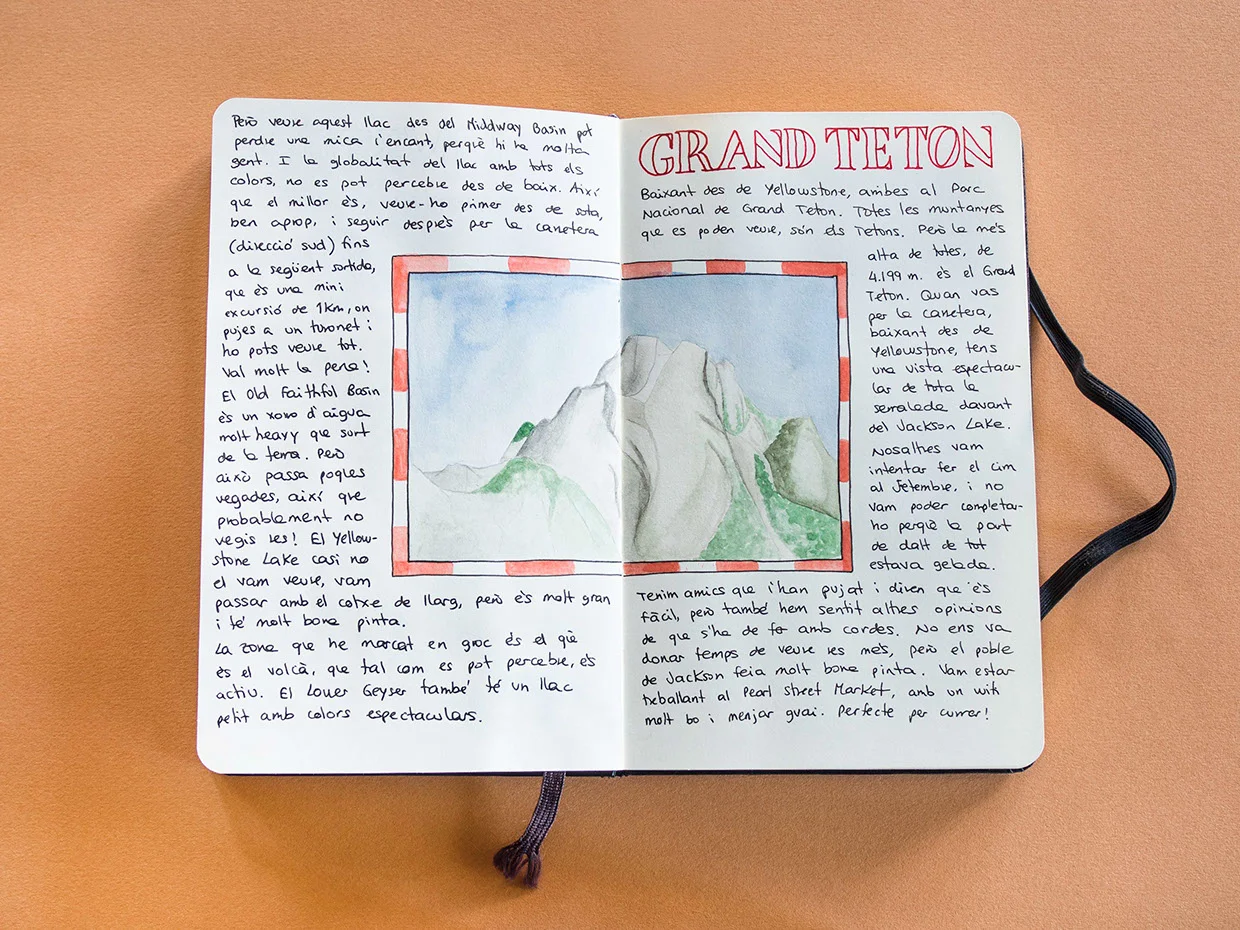 Però veure aquest llac des del Middway Basin pot
perdre una mica l'encant, perquè hi ha molta
gent. I la globalitat del llac amb tots els
colors, no es pot percebre des de baix. Així
que el millor és, veure-ho primer des de sota,
ben aprop, i seguir després per la carretera
(direcció sud) fins
a la següent sortida,
que és una mini
excursió de 1km, on
pujes a un turonet i
ho pots veure tot.
Val molt la pena!
El Old Faithful Basin
és un xorro d'aigua
molt heavy que surt
de la terra. Però
això passa poques
vegades, així que
probablement no
vegis res! El Yellow-
stone Lake casi no
el vam veure, vam
passar amb el cotxe de llarg, però és molt gran
i té molt bona pinta.
La zona que he marcat en groc és el què
és el volcà, que tal com es pot percebre, és
actiu. El Lower Geyser també té un llac
petit amb colors espectaculars.
GRAND TETON
Baixant des de Yellowstone, arribes al Parc
Nacional de Grand Teton. Totes les muntanyes
que es poden veure, són els Tetons. Però la més
alta de totes, de
4.199 m. és el Grand
Teton. Quan vas
per la carretera,
baixant des de
Yellowstone, tens
una vista espectacu-
lar de tota la
serralada davant
del Jackson Lake.
Nosaltres vam
intentar fer el cim
al Setembre, i no
vam poder completar-
ho perquè la part
de dalt de tot
estava gelada.
Tenim amics que l'han pujat i diuen que és
fàcil, però també hem sentit altres opinions
de que s'ha de fer amb cordes. No ens va
donar temps de veure res més, però el poble
de Jackson feia molt bona pinta. Vam estar
treballant al Pearl Street Market, amb un wifi
molt bo i menjar guai. Perfecte per currar!